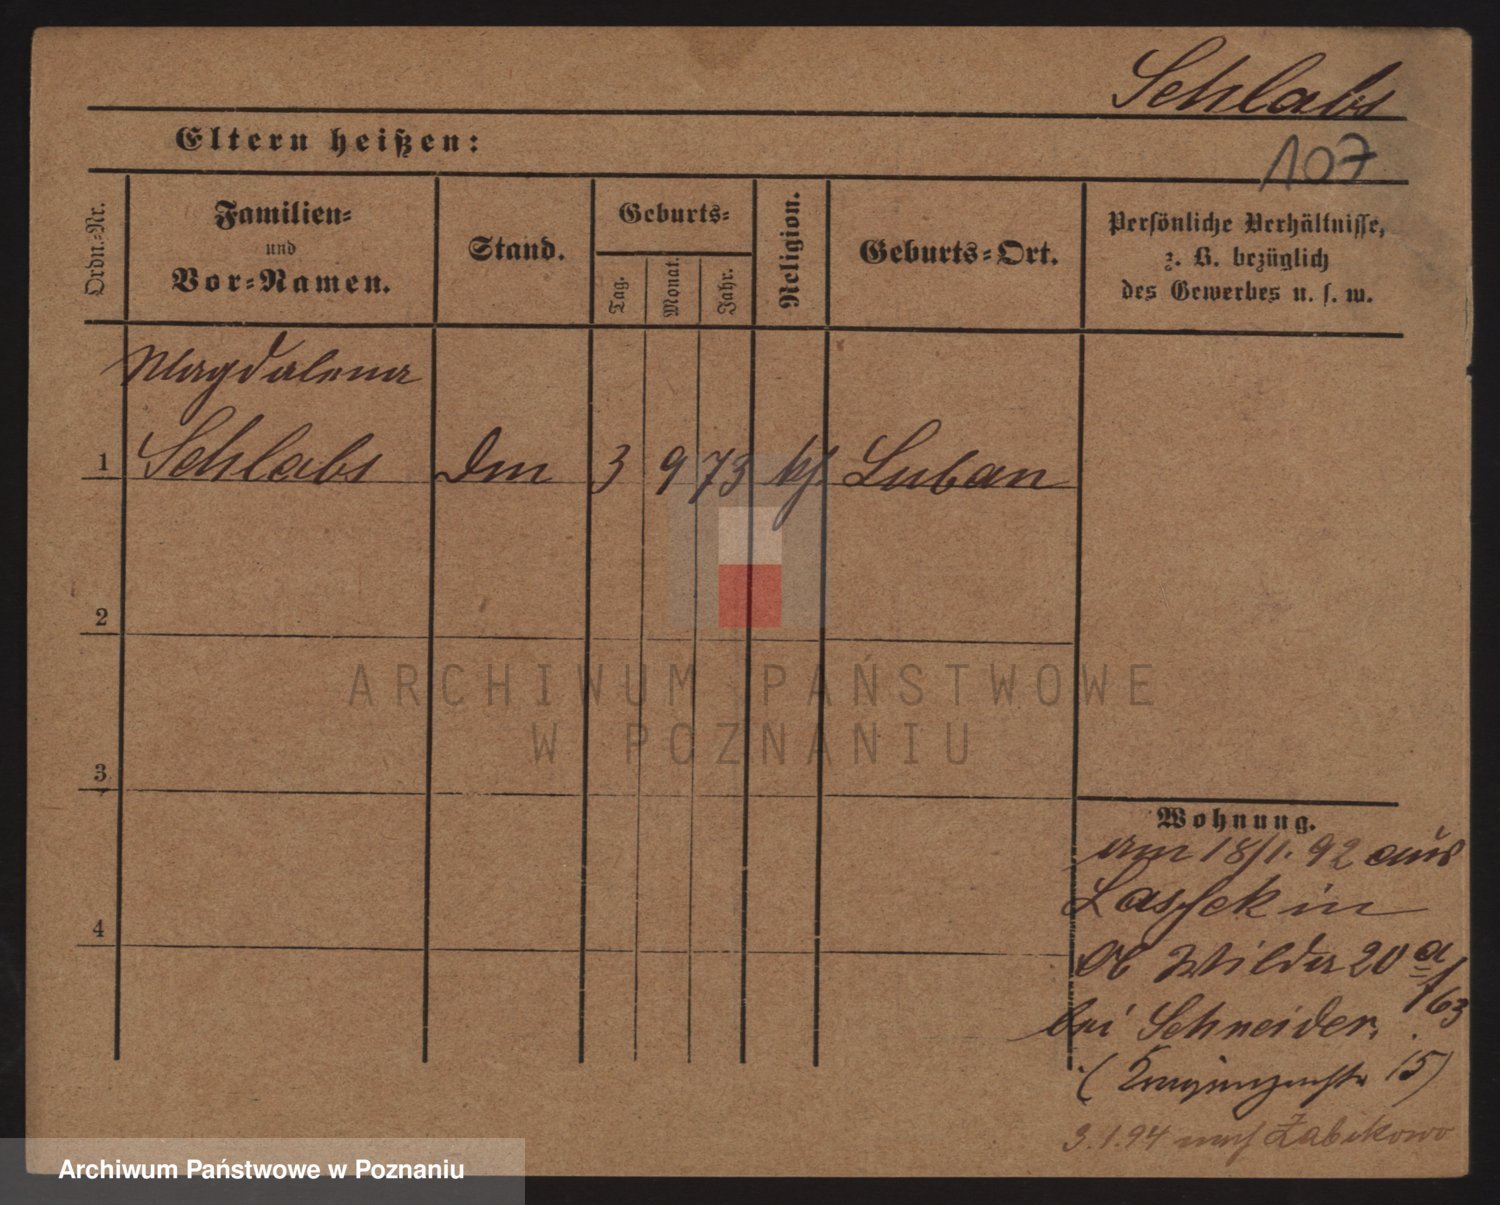 Schlabs
Eltern heißen:
107
Ordn.-Nr.
Familien-
und
Vor-Namen.
Stand.
Geburts-
Tag.
Monat.
Jahr.
Religion.
Geburts-Ort.
Persönliche Verhältnisse,
z. B. bezüglich
des Gewerbes u. s. w.
Magdalena
1 Schlabs Dm 3 9 73 kf. Luban
2
3
4
Wohnung.
am 18/1. 92 aus
Lassek in
Wilda 20 a/63
bei Schneider.
15)
3.1.94 nach Żabikowo
ARCHIWUM PAŃSTWOWE
W POZNANIU
Archiwum Państwowe w Poznaniu